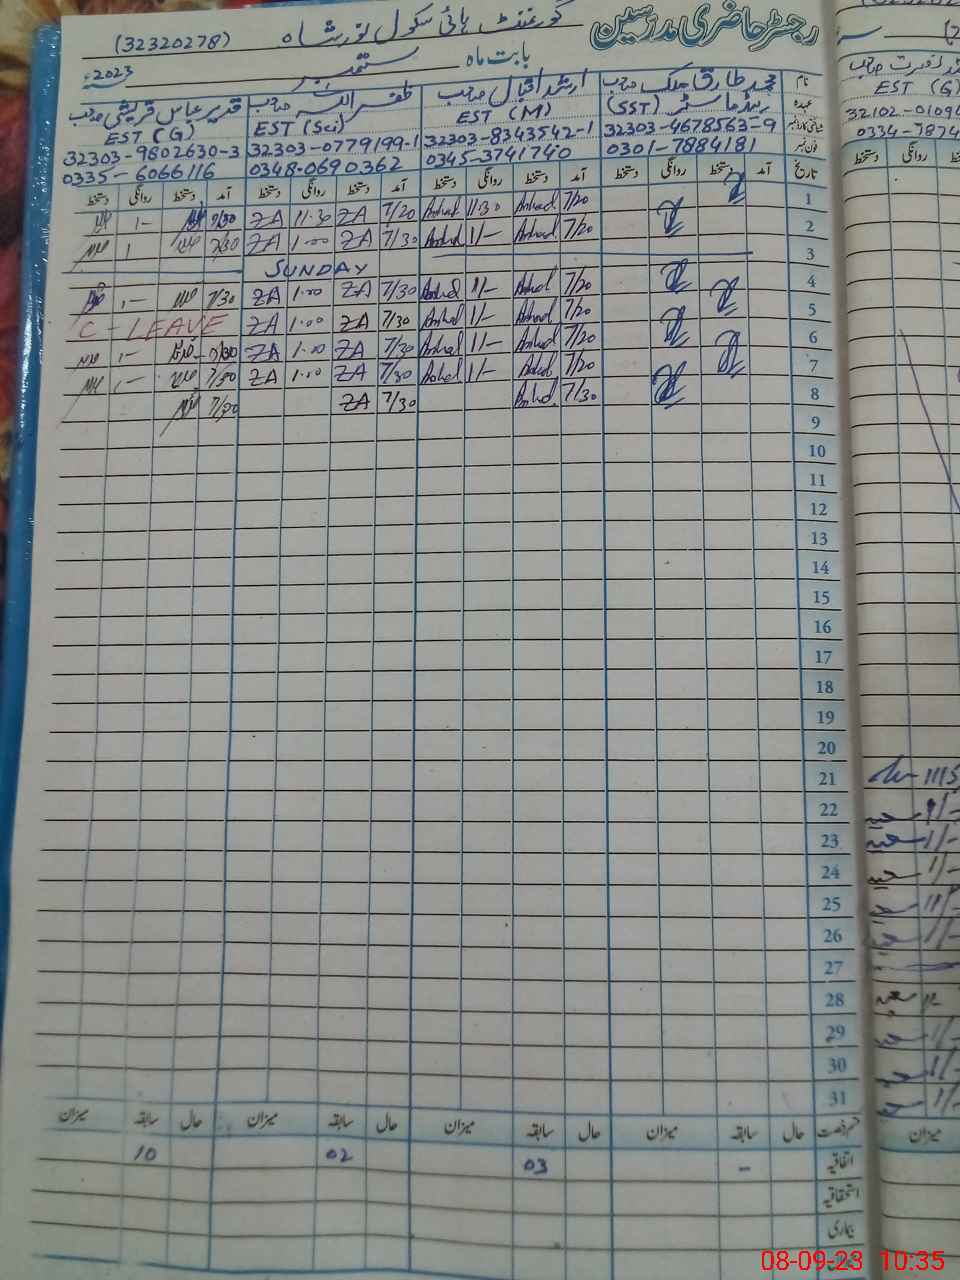 رجسٹر حاضری مدرسین گورنمنٹ ہائی سکول نور شاہ (32320278)
بابت ماہ ستمبر 2023ء
نام محمد طارق ملک صاحب ارشد اقبال صاحب ظفر اللہ صاحب قدیر عباس قریشی صاحب
عہدہ ہیڈ ماسٹر (SST) EST (M) EST (Sci) EST (G)
شناختی کارڈ نمبر 32303-4678563-9 32303-8343542-1 32303-0779199-1 32303-9802630-3
فون نمبر 0301-7884181 0345-3741740 0348-0690362 0335-6066116
تاریخ آمد دستخط روانگی دستخط آمد دستخط روانگی دستخط آمد دستخط روانگی دستخط آمد دستخط روانگی دستخط
1 7/20 Arshad 11.30 Arshad 7/20 ZA 11.30 ZA 7/30 1-
2 7/20 Arshad 1/- Arshad 7/30 ZA 1.00 ZA 7/30 1
3 SUNDAY
4 7/20 Arshad 1/- Arshad 7/30 ZA 1.00 ZA 7/30 1-
5 7/20 Arshad 1/- Arshad 7/30 ZA 1.00 ZA C-LEAVE
6 7/20 Arshad 1/- Arshad 7/30 ZA 1.00 ZA 7/30 1-
7 7/20 Arshad 1/- Arshad 7/30 ZA 1.00 ZA 7/30 1-
8 7/30 Arshad 7/30 ZA 7/30
9
10
11
12
13
14
15
16
17
18
19
20
21
22
23
24
25
26
27
28
29
30
31
قسم رخصت حال سابقہ میزان حال سابقہ میزان حال سابقہ میزان حال سابقہ میزان
اتفاقیہ - 03 02 10
استحقاقیہ
بیماری
EST (G)
32102-0109
0334-7874
دستخط روانگی
میزان
08-09-23 10:35